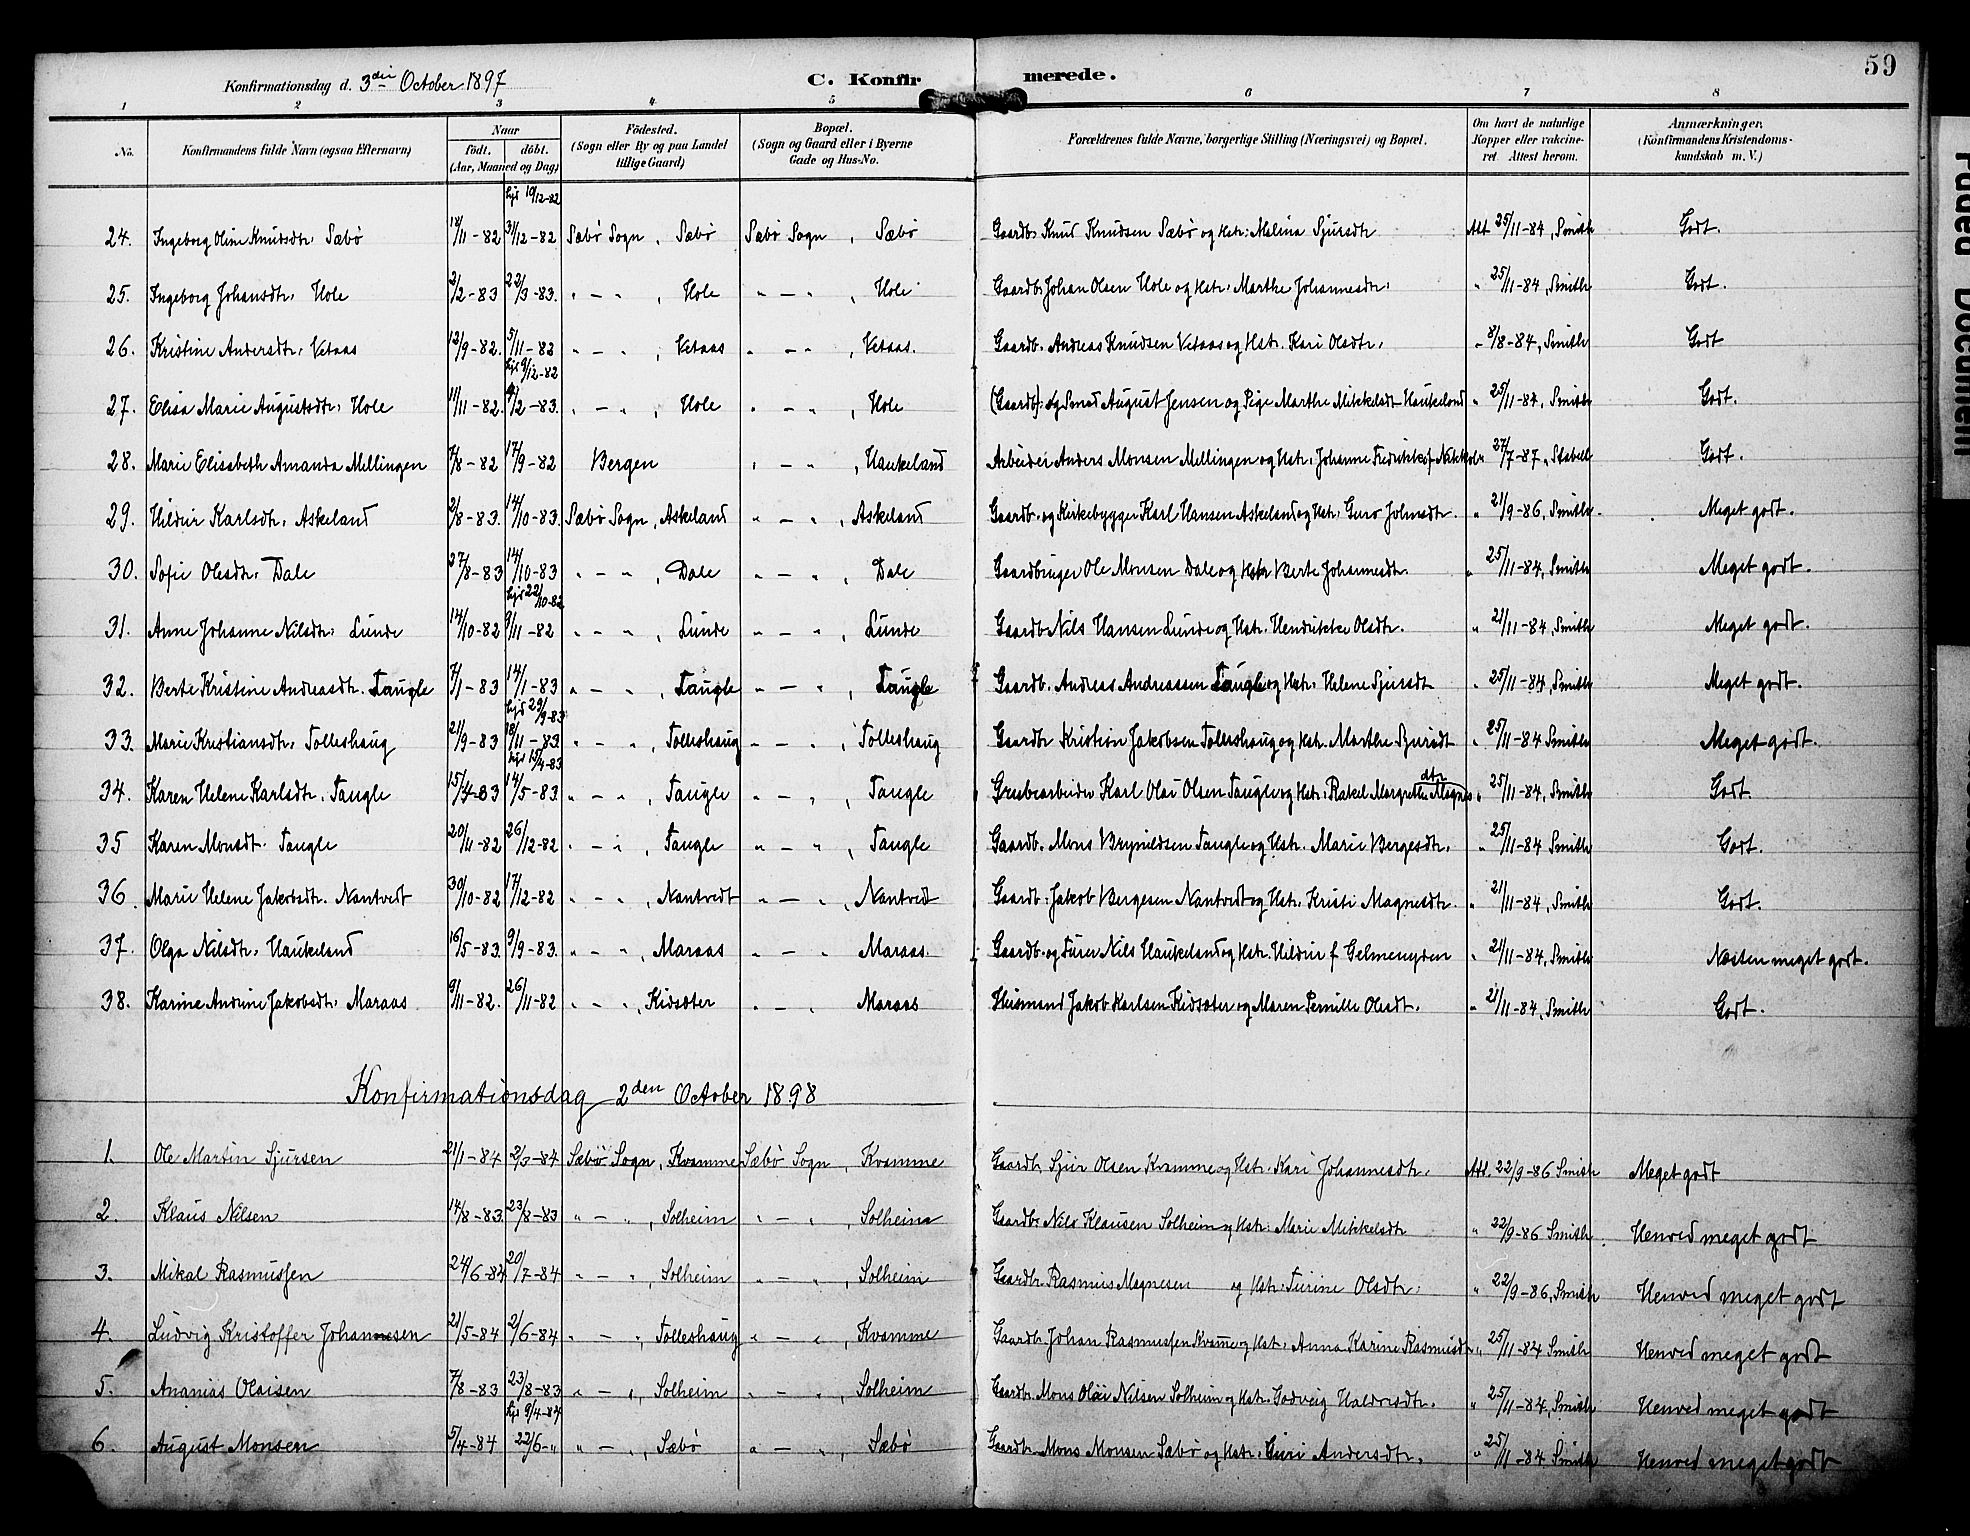 59
Konfirmationsdag d. 3die October 1897
C. Konfirmerede.
1 2 3 4 5 6 7 8
No. Konfirmandens fulde Navn (ogsaa Efternavn) Naar födt. döbt. (Aar, Maaned og Dag) Födested. (Sogn eller By og paa Landet tillige Gaard) Bopæl. (Sogn og Gaard eller i Byerne Gade og Hus-No. Forældrenes fulde Navne, borgerlige Stilling (Næringsvei) og Bopæl. Om havt de naturlige Kopper eller vakcineret. Attest herom. Anmærkninger. (Konfirmandens Kristendomskundskab m. V.)
24. Ingeborg Oline Knudsdtr. Sæbö 18/11-82 hjd 19/12-82 31/12-82 Sæbö Sogn, Sæbö Sæbö Sogn, Sæbö Gaardb. Knud Knudsen Sæbö og Hstr. Malina Sjursdtr Att 25/11-84, Smith Godt.
25. Ingeborg Johansdtr. Hole 2/2-83 22/3-83. " - ", Hole " - ", Hole Gaardb. Johan Olsen Hole og Hstr. Marthe Johannesdtr. " 25/11-84, Smith Godt.
26. Kristine Andersdtr. Vetaas 12/9-82. 5/11-82 " - ", Vetaas " - ", Vetaas. Gaardb. Andreas Knudsen Vetaas og Hstr. Kari Olsdtr. " 8/8-84, Smith Godt
27. Elisa Marie Augustsdtr. Hole 11/11-82. hjd 9/12-82 /2-83. " - ", Hole " - ", Hole (Gaardb). og Smed August Jensen og Pige Marthe Mikkelsdt Haukeland " 25/11-84, Smith Godt.
28. Marie Elisabeth Amanda Mellingen 7/8-82 17/9-82 Bergen " - ", Haukeland Arbeider Anders Monsen Mellingen og Hstr. Johanne Fredrikke f. 27/7-87, Stabell Godt.
29. Hildur Karlsdtr. Askeland 2/8-83. 14/10-83. Sæbö Sogn, Askeland " - ", Askeland Gaardb. og Kirkebygger Karl Hansen Askeland og Hstr. Guro Johnsdtr. " 21/9-86, Smith. Meget godt.
30. Sofie Olesdtr. Dale 27/8-83 14/10-83 " - ", Dale " - ", Dale Gaardbruger Ole Monsen Dale og Hstr Berte Johannesdtr. " 25/11-84, Smith Meget godt.
31. Anne Johanne Nilsdtr. Lunde 14/10-82 hjd 22/10-82 9/11-82 " - ", Lunde " - ", Lunde Gaardb Nils Hansen Lunde og Hstr. Hendrikke Olsdtr. " 21/11-84, Smith Meget godt.
32. Berte Kristine Andreasdtr. Taugle 7/1-83 14/1-83 " - ", Taugle " - ", Taugle Gaardb. Andreas Andreassen Taugle og Hstr. Helene Sjursdt " 25/11-84, Smith Meget godt.
33. Marie Kristiansdtr. Tolleshaug 21/9-83 hjd 29/9-83 18/11-83. " - ", Tolleshaug " - ", Tolleshaug Gaardb Kristian Jakobsen Tolleshaug og Hstr. Marthe Sjursdt " 25/11-84 Smith Meget godt.
34. Karen Helene Karlsdtr. Taugle 15/4-83 hjd 15/4-83 14/5-83. " - ", Taugle " - ", Taugle Grubearbeider Karl Olai Olsen Taugle og Hstr. Rakel Margrethe Magnesdtr " 25/11-84, Smith Godt.
35 Karen Monsdt. Taugle 20/11-82 26/12-82 " - ", Taugle " - ", Taugle Gaardb. Mons Brynildsen Taugle og Hstr. Marie Bergesdtr. " 25/11-84 Smith Godt.
36. Marie Helene Jakobsdtr. Nantvedt 30/10-82 17/12-82 " - ", Nantvedt " - ", Nantvedt Gaardb. Jakob Bergesen Nantvedt og Hstr. Kristi Magnesdtr. " 21/11-84, Smith Godt.
37. Olga Nilsdtr. Haukeland 16/5-83. 9/9-83. " - ", Maraas " - " Maraas. Gaardb. og Furer Nils Haukeland og Hstr. Hildur f Gelmenyden " 21/11-84, Smith Næsten meget godt.
38. Karine Andrine Jakobsdtr. Maraas 9/11-82. 26/11-82 " - ", Kidsæter " - " Maraas Husmand Jakob Karlsen Kidsæter og Maren Pernille Olsdt. " 21/11-84, Smith Godt.
Konfirmationsdag 2den October 1898
1. Ole Martin Sjursen 21/1-84 2/3-84 Sæbö Sogn, Kvamme Sæbö Sogn, Kvamme Gaardb. Sjur Olsen Kvamme og Hstr. Kari Johannesdtr. Att. 22/9-86 Smith Meget godt
2. Klaus Nilsen 14/8-83. 23/8-83 " - ", Solheim " - ", Solheim Gaardbr Nils Klausen Solheim og Hstr. Marie Mikkelsdtr " 22/9-86 Smith. Henved meget godt
3. Mikal Rasmussen 24/6-84 20/7-84 " - ", Solheim " - ", Solheim Gaardbr. Rasmus Magnesen og Hstr. Turine Olsdtr. " 22/9-86, Smith Henved meget godt
4. Ludvig Kristoffer Johannesen 21/5-84 2/6-84 " - ", Tolleshaug " - ", Kvamme Gaardbr Johan Rasmussen Kvame og Hst. Anna Karine Rasmusdt " 25/11-84 Smith Henved meget godt
5. Ananias Olaisen 7/8-83 23/8-83 " - ", Solheim " - ", Solheim Gaardbr. Mons Olai Nilsen Solheim og Hstr. Godveig Haldorsdtr. " 25/11-84, Smith Henved meget godt
6. August Monsen 5/4-84 hjd 9/4-84 22/6-" " - ", Sæbö " - ", Sæbö Gaardbr. Mons Monsen Sæbö og Hstr. Guri Andersdtr. " 25/11-84 Smith Henved meget godt